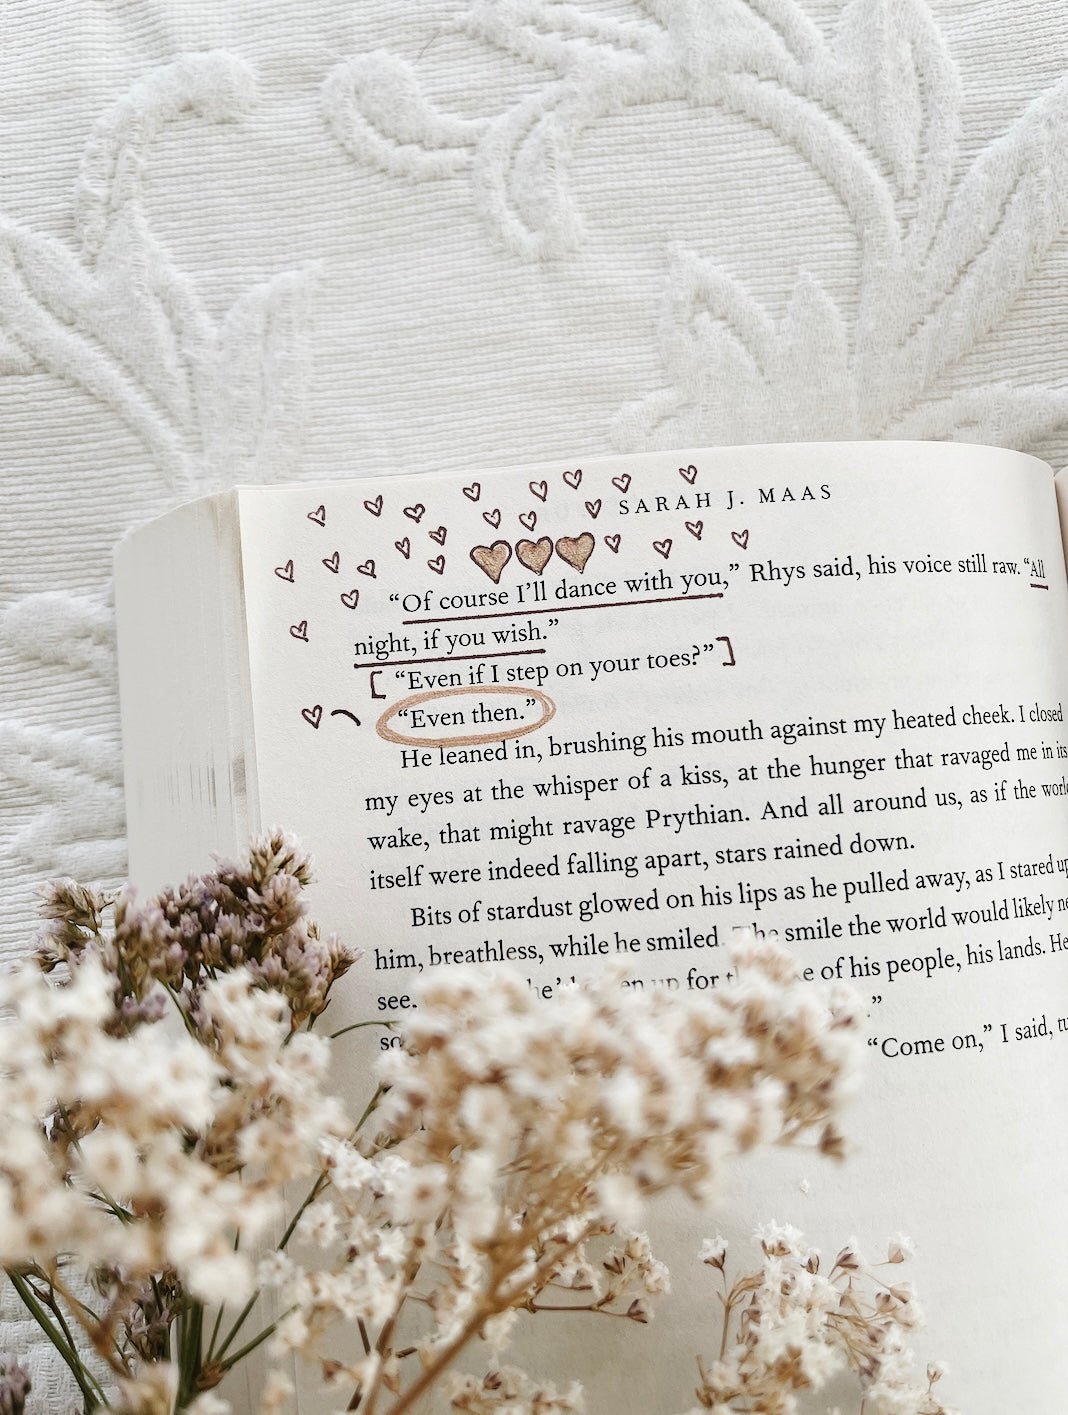 SARAH J. MAAS
“Of course I’ll dance with you,” Rhys said, his voice still raw. “All
night, if you wish.”
“Even if I step on your toes?”
“Even then.”
He leaned in, brushing his mouth against my heated cheek. I closed
my eyes at the whisper of a kiss, at the hunger that ravaged me in its
wake, that might ravage Prythian. And all around us, as if the world
itself were indeed falling apart, stars rained down.
Bits of stardust glowed on his lips as he pulled away, as I stared up
him, breathless, while he smiled. The smile the world would likely
see. for of his people, his lands. He
”
“Come on,” I said,